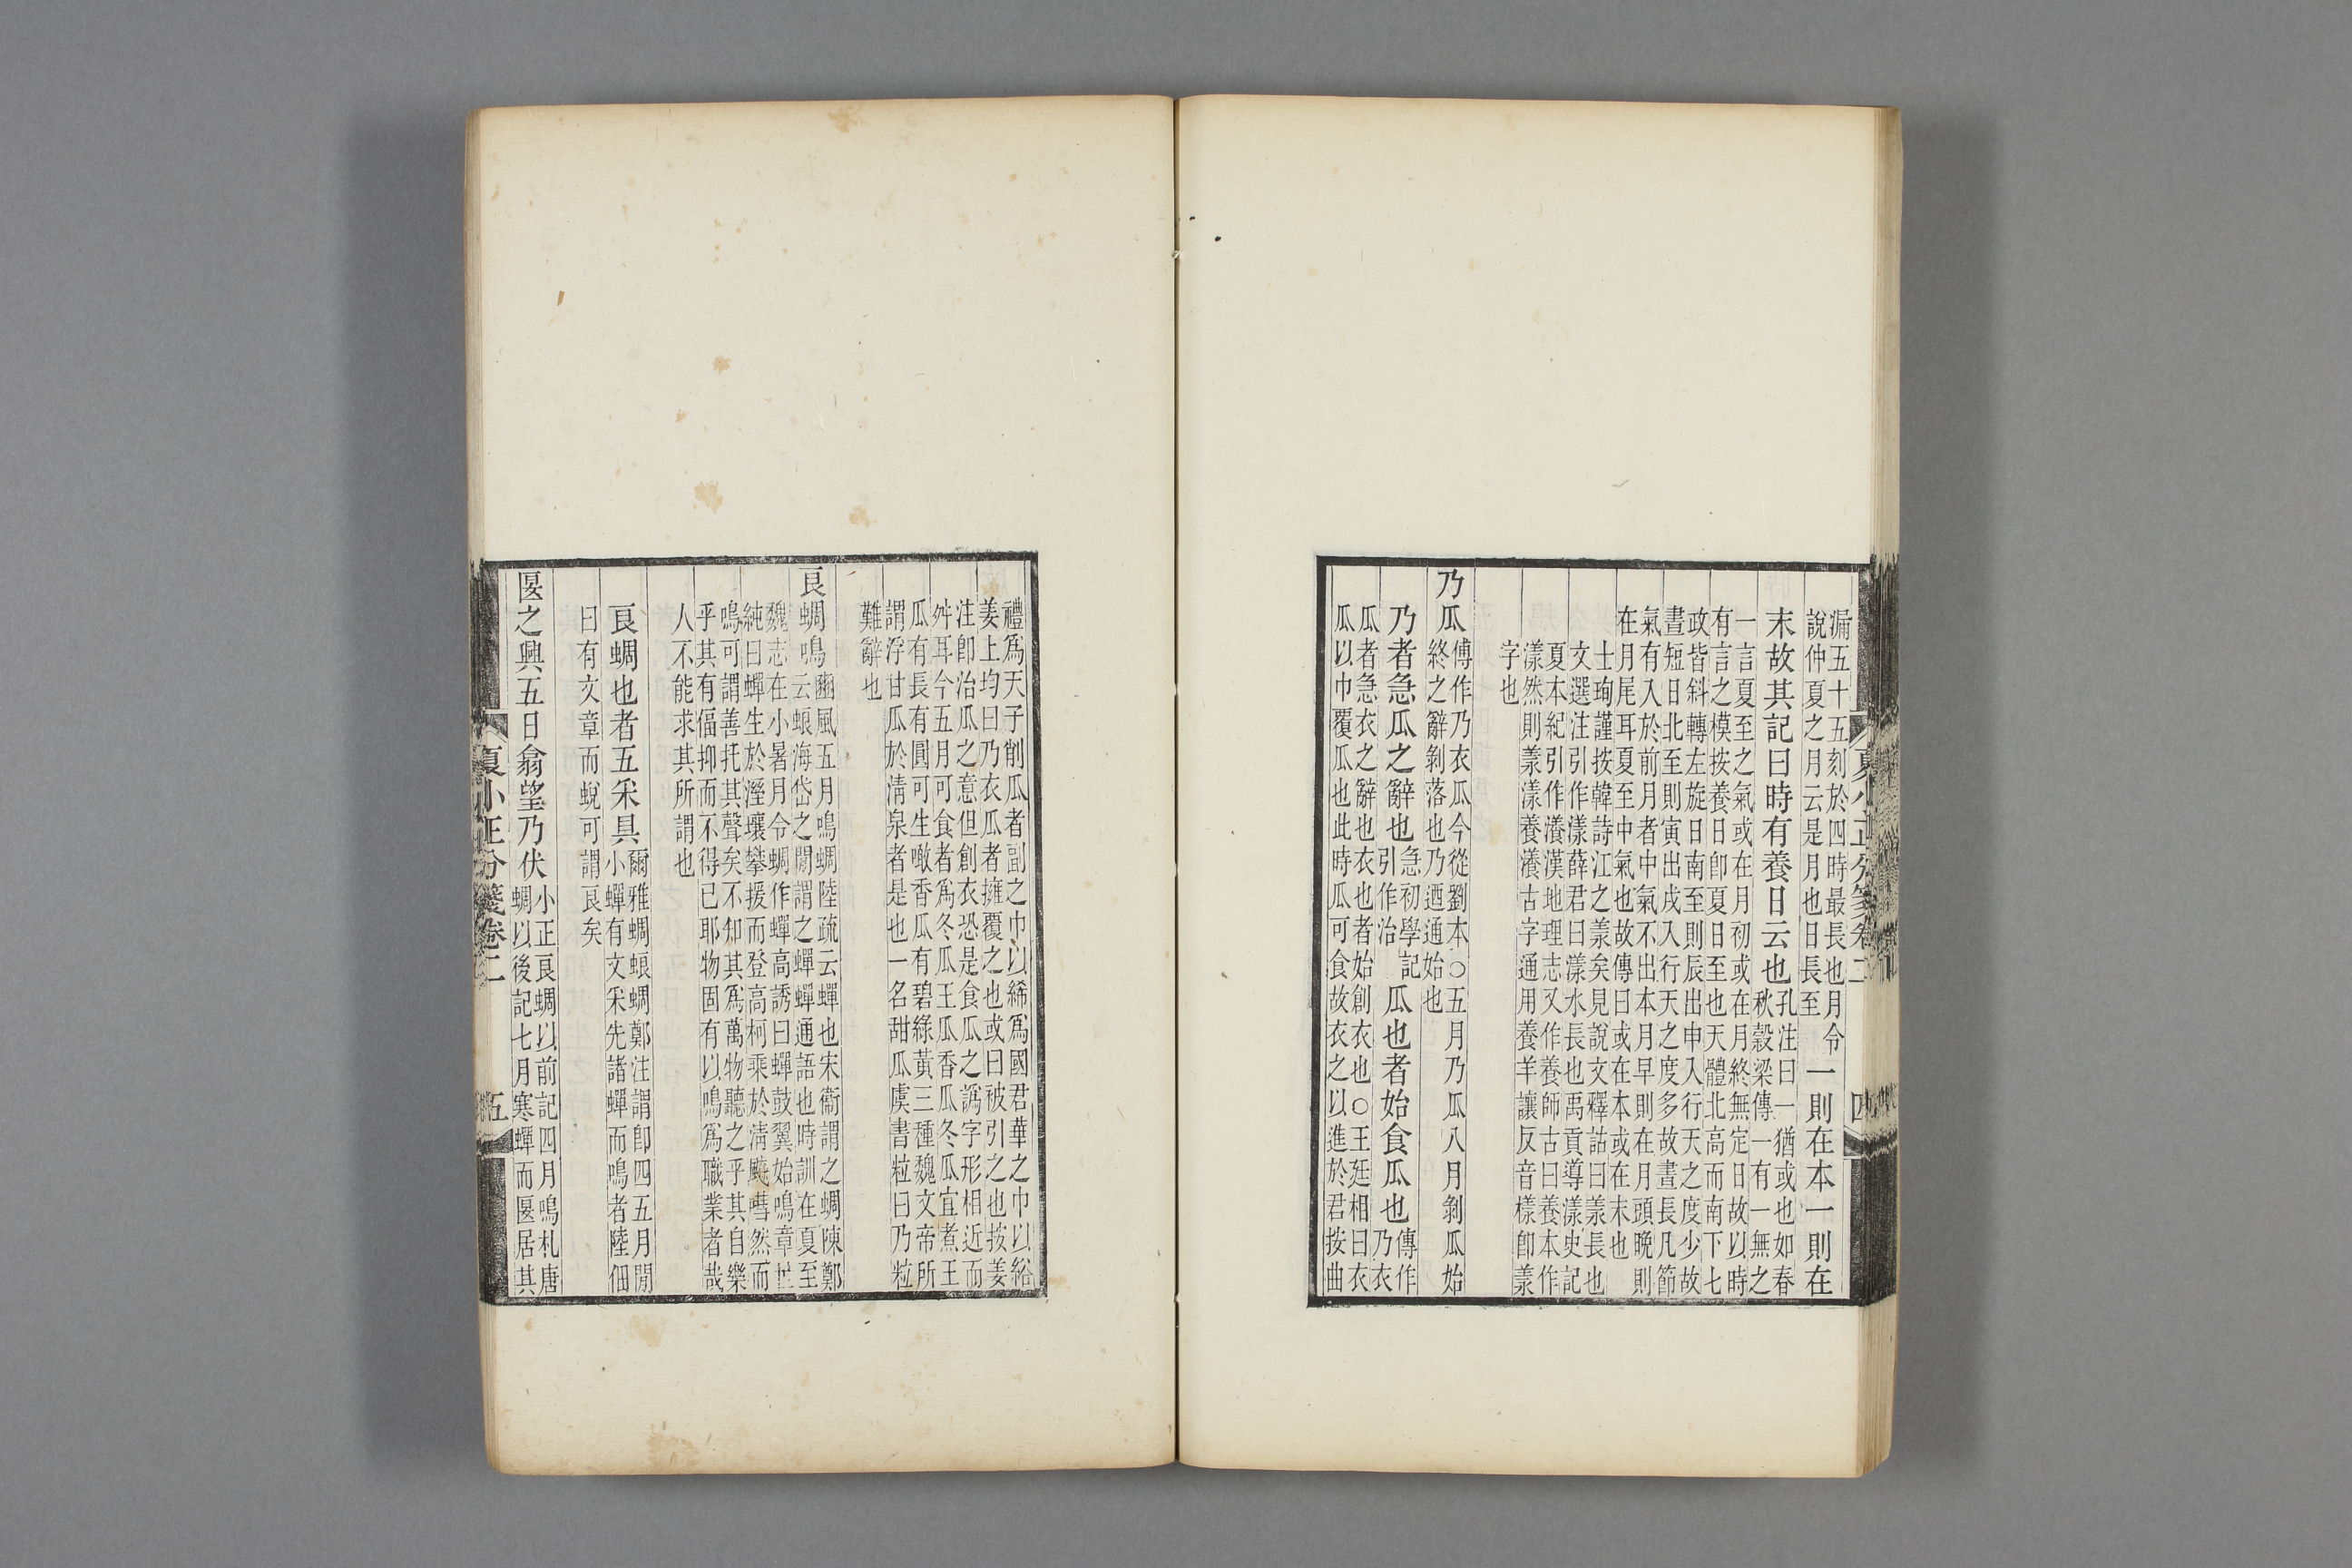 漏五十五刻於四時最長也月令
說仲夏之月云是月也日長至
一則在本一則在
末故其記曰時有養日云也
孔注曰一猶或也如春
秋穀梁傳一有一無之
一言夏至之氣或在月初或在月終無定日故以時
有言之模按養日卽夏日至也天體北高而南下七
政皆斜轉左旋日南至則辰出申入行天之度少故
晝短日北至則寅出戌入行天之度多故晝長凡節
氣有入於前月者中氣不出本月早則在月頭晚則
在月尾耳夏至中氣也故傳曰或在本或在末也
士珣謹按韓詩江之羕矣見說文釋詁曰羕長也
文選注引作漾薛君曰漾水長也禹貢導漾史記
夏本紀引作瀁漢地理志又作養師古曰養本作
漾然則羕漾養瀁古字通用養羊讓反音樣卽羕
字也
乃瓜
傳作乃衣瓜今從劉本○五月乃瓜八月剝瓜始
終之辭剝落也乃迺通始也
乃者急瓜之辭也
急初學記
引作治
瓜也者始食瓜也
傳作
乃衣
瓜者急衣之辭也衣也者始創衣也○王廷相曰衣
瓜以巾覆瓜也此時瓜可食故衣之以進於君按曲
夏小正分箋卷二
四
禮爲天子削瓜者副之巾以絺爲國君華之巾以綌
姜上均曰乃衣瓜者擁覆之也或曰被引之也按姜
注卽治瓜之意但創衣恐是食瓜之譌字形相近而
舛耳今五月可食者爲冬瓜王瓜香瓜冬瓜宜煮王
瓜有長有圓可生噉香瓜有碧綠黃三種魏文帝所
謂浮甘瓜於淸泉者是也一名甜瓜虞書粒曰乃粒
難辭也
良蜩鳴
豳風五月鳴蜩陸疏云蟬也宋衞謂之蜩陳鄭
云蜋海岱之閒謂之蟬蟬通語也時訓在夏至
魏志在小暑月令蜩作蟬高誘曰蟬鼓翼始鳴章世
純曰蟬生於溼壤攀援而登高柯乘於淸飇嘒然而
鳴可謂善托其聲矣不知其爲萬物聽之乎其自樂
乎其有偪抑而不得已耶物固有以鳴爲職業者哉
人不能求其所謂也
良蜩也者五采具
爾雅蜩蜋蜩鄭注謂卽四五月閒
小蟬有文采先諸蟬而鳴者陸佃
曰有文章而蛻可謂良矣
匽之興五日翕望乃伏
小正良蜩以前記四月鳴札唐
蜩以後記七月寒蟬而匽居其
夏小正分箋卷二
五